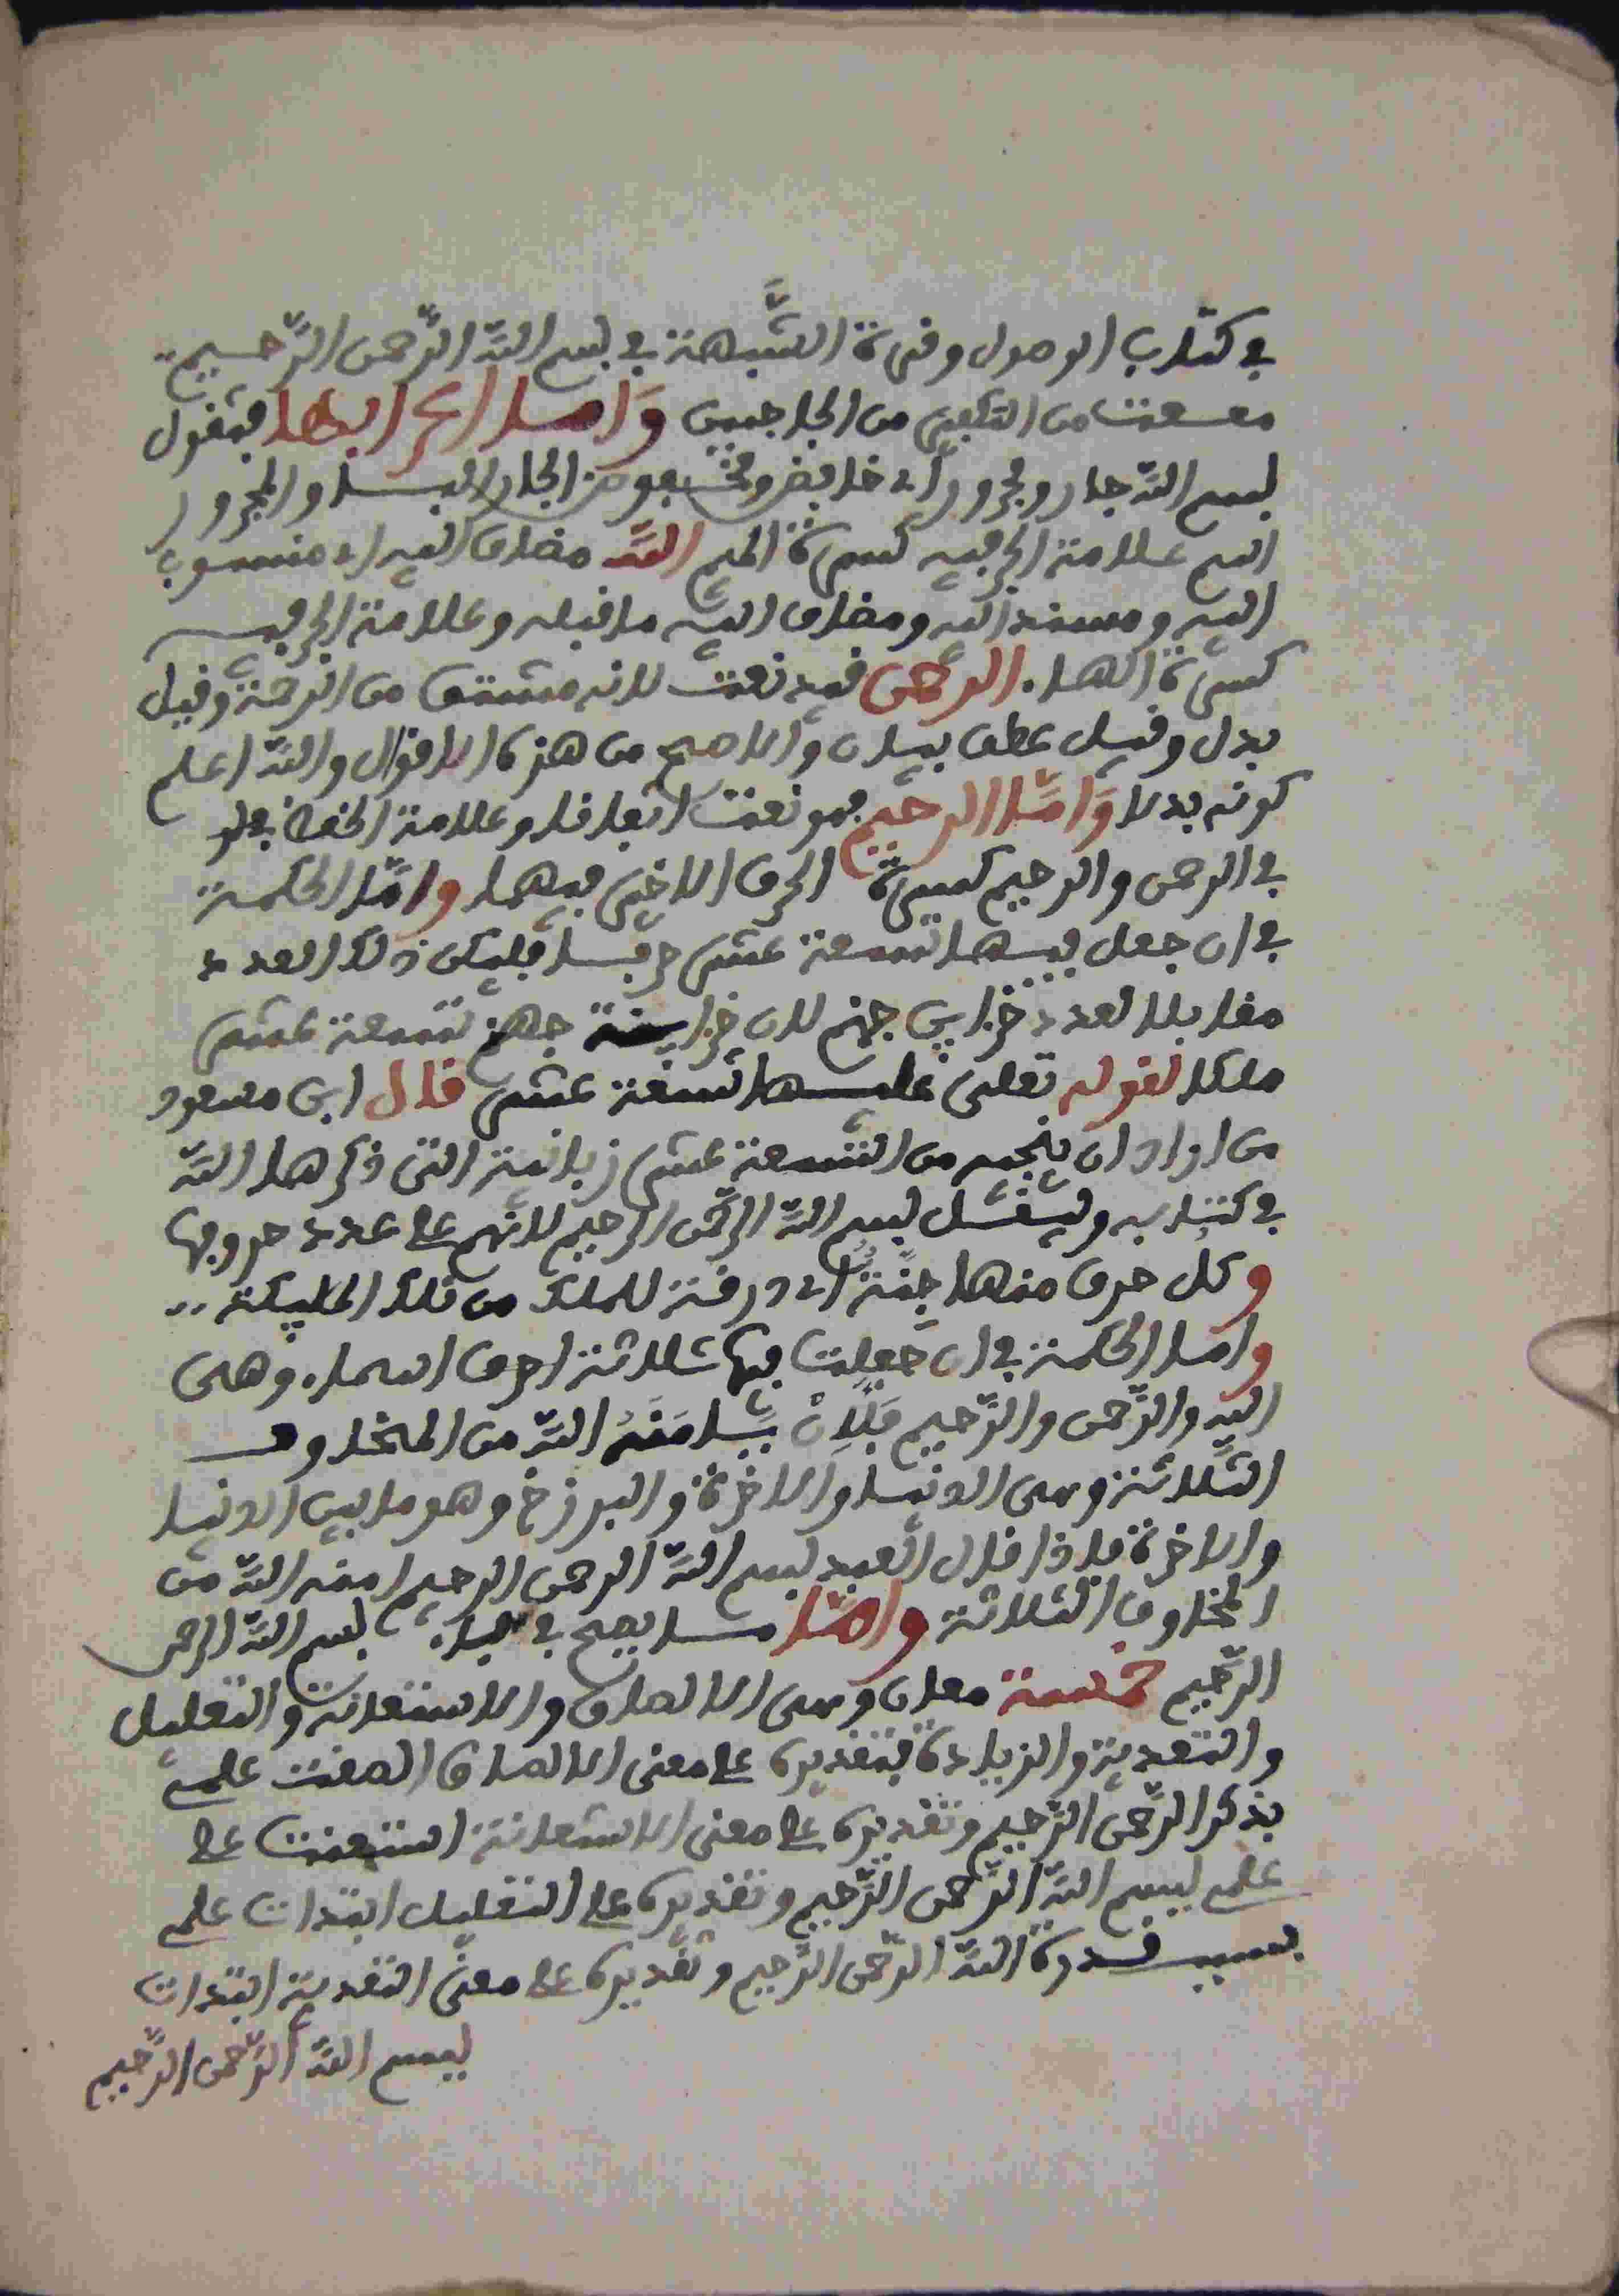 في كتاب الوصول وفي الشبهة في بسم الله الرَّحمن الرَّحيم
من الجانبين وَاما اعرابها فتقول
بسم الله جار ومجرور اي خافض ومخفوض الجار البا والمجرور
اسم علامة الجر فيه كسرة الميم الله مضاف اليه اي منسوب
اليه ومسند اليه ومضاف اليه ما قبله وعلامة الجر فيه
كسرة الهاء الرحمن فيه نعت لانه مشتق من الرحمة وقيل
بدل وقيل عطف بيان والاصح من هذه الاقوال والله اعلم
كونه بدلا وَامَّا الرحيم فهو نعت اتفاقا وعلامة الخفظ
في الرحمن والرحيم كسرة الحرف الاخير فيهما وامَّا الحكمة
في ان جعل فيها تسعة عشر حرفا فليكن ذلك العدد
مقابلا لعدد خزاين جهنم لان خزاينة جهنم تسعة عشر
ملكا لقوله تعلى عليها تسعة عشر قال ابن مسعود
من اراد ان ينجيه من التسعة عشر زبانية التي ذكرها الله
في كتابه بسم الله الرحمن الرحيم لانهم على عدد حروفها
وكل حرف منها جُنَّةٌ اي درقة للملك من تلك المليكة
واما الحكمة في ان جعلت فيها ثلاثة احرف اسماء وهى
الله والرَّحمن والرَّحيم الله من المخاوف
الثَّلاثة وهى الدنيا والاخرة والبرزخ وهو ما بين الدنيا
والاخرة فاذا قال العبد بسم الله الرحمن الرحيم امنه الله من
المخاوف الثلاثة وامَّا ما يصح في باء بسم الله الرحمن
الرَّحيم خمسة معان وهى الالصاق والاستعانة والتعليل
والتعدية والزيادة فتقديره على معنى الالصاق الصقت علمي
بذكر الرَّحمن الرَّحيم وتقديره على معنى الاستعانة استعنت على
علمي ببسم الله الرَّحمن الرَّحيم وتقديره على التعليل ابتدات علمي
بسبب قدرة الله الرَّحمن الرَّحيم وتقديره على معنى التعدية ابتدات
ببسم الله الرَّحمن الرَّحيم